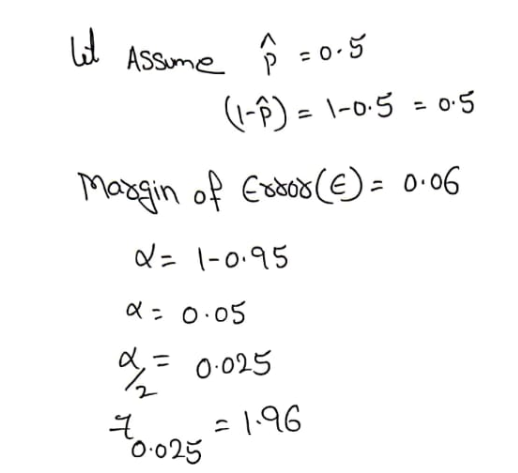 let Assume p̂ = 0.5
(1-p̂) = 1-0.5 = 0.5
Margin of Error(E) = 0.06
α = 1-0.95
α = 0.05
α/2 = 0.025
z0.025 = 1.96